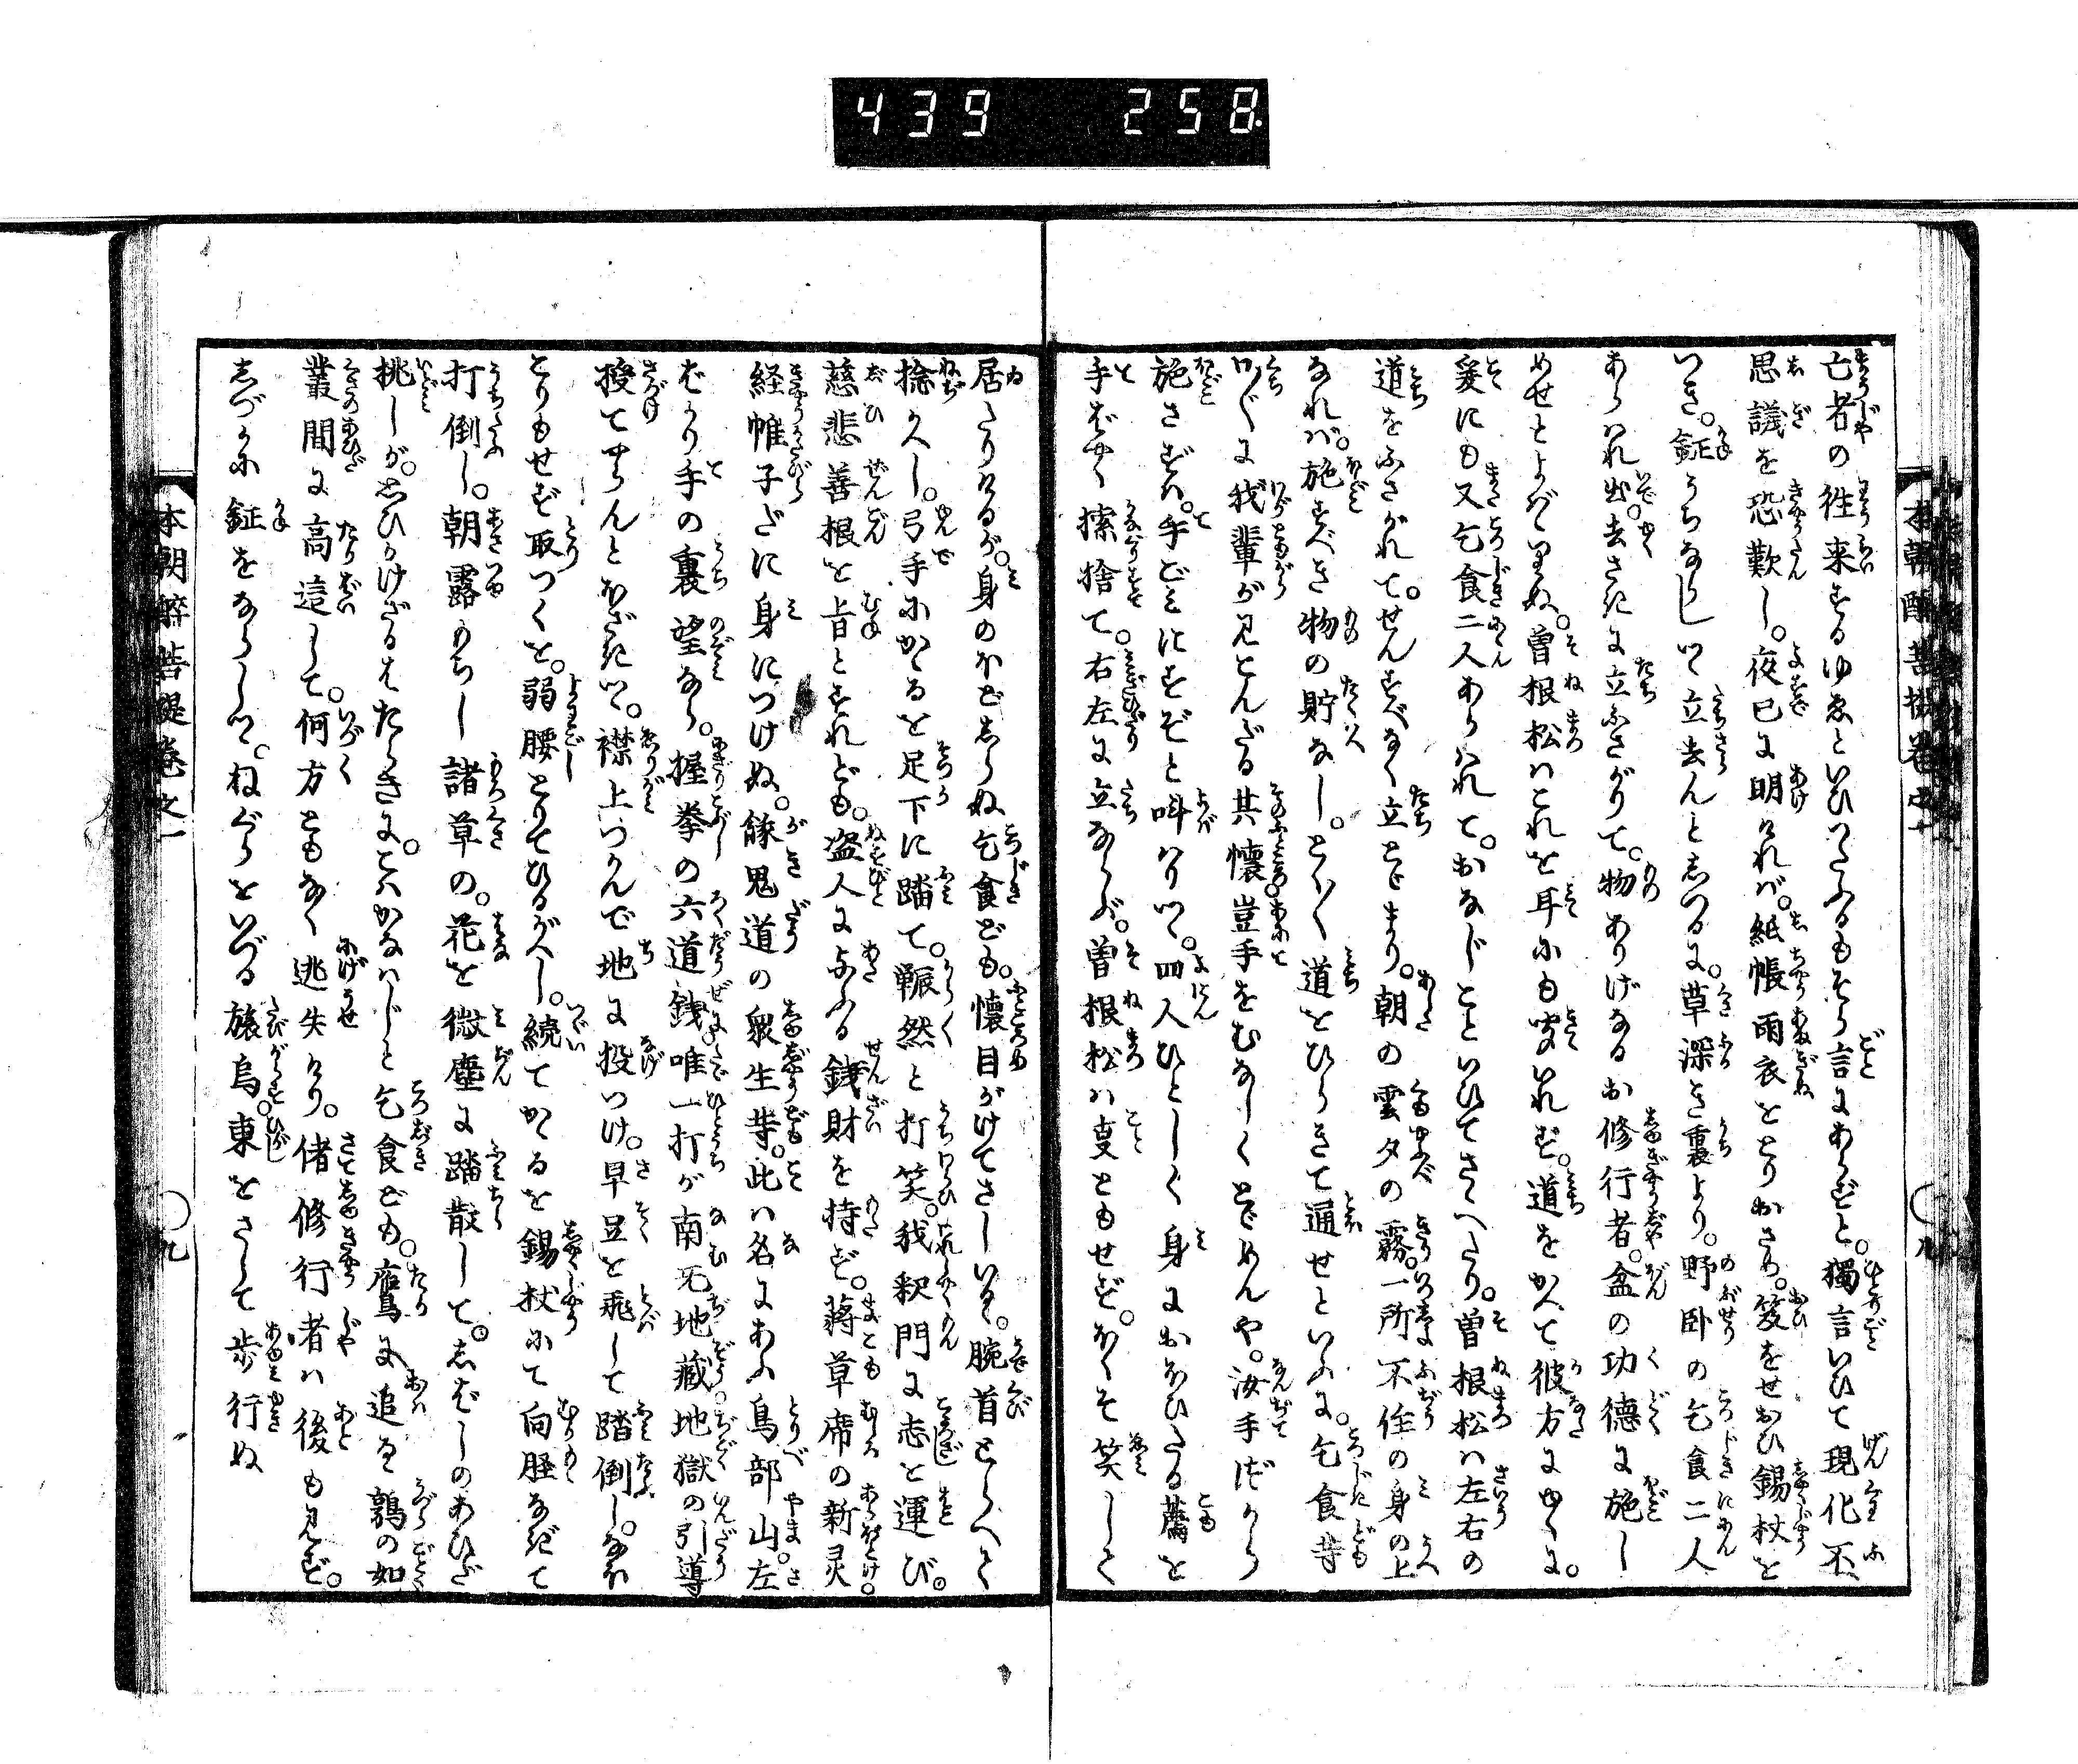 439 258
亡者の徃来するゆゑといひつたふるもそら言にあらずと。獨言いひて現化不
思議を恐歎し。夜已に明けれバ。紙帳雨衣とりおさめ。笈をせおひ錫杖を
つき。鉦うちならしつゝ立去んとしつるに。草深き裏より。野卧の乞食二人
あらハれ出。去さきに立ふさがりて。物ありげなるお修行者。盆の功德に施し
めせとよばゝりぬ。曽根松ハこれを耳にも聞いれず。道をかへて彼方にゆくに。
爰にも又乞食二人あらハれて。おなじことといひてさゝへたり。曽根松ハ左右の
道をふさがれて。せんすべなく立とゞまり。朝の雲夕の霧。一所不住の身の上
なれバ。施すべき物の貯なし。とかく道をひらきて通せといふに。乞食等
口々に我輩が見とんだる其懐豈手をむなしくとゞめんや。汝手づから
施さずバ。手どりにすぞと呌りつゝ。四人ひとしく身におほひたる薦を
手ばやく搎捨て。右左に立ならぶ。曽根松ハ叓ともせず。ほくそ笑して
居たりけるが。身のほどしらぬ乞食ども。懐目がけてさしいるゝ。腕首とらへて
捻かへし。弓手にかゝるを足下に踏て。囅然と打笑。我釈門に志を運び。
慈悲善根を旨とすれども。盗人に与る銭財を持ず。蒋草席の新灵
経帷子だに身につけぬ。餓鬼道の衆生等。此ハ名にあふ鳥部山。左
ばかり手の裏望なら。握拳の六道銭。唯一打が南无地藏。地獄の引導
授てやらんとあざむきつゝ。襟上つかんで地に投つけ。早足を飛して踏倒し。なほ
とりもせず取つくを。弱腰とりてひるがへし。続てかゝるを錫杖にて向脛なぎて
打倒し。朝露のちし諸草の。花を微塵に踏散して。しばしのあひだ
挑しが。思ひかけざるはたらきに。こハかなハじと乞食ども。鷹に追るゝ鶉の如
叢間に高這して。何方ともなく逃失けり。偖修行者ハ後も見ず。
しづかに鉦をならしつゝ。ねぐらをいづる旅烏。東をさして歩行ぬ
本朝醉菩提巻之一
九